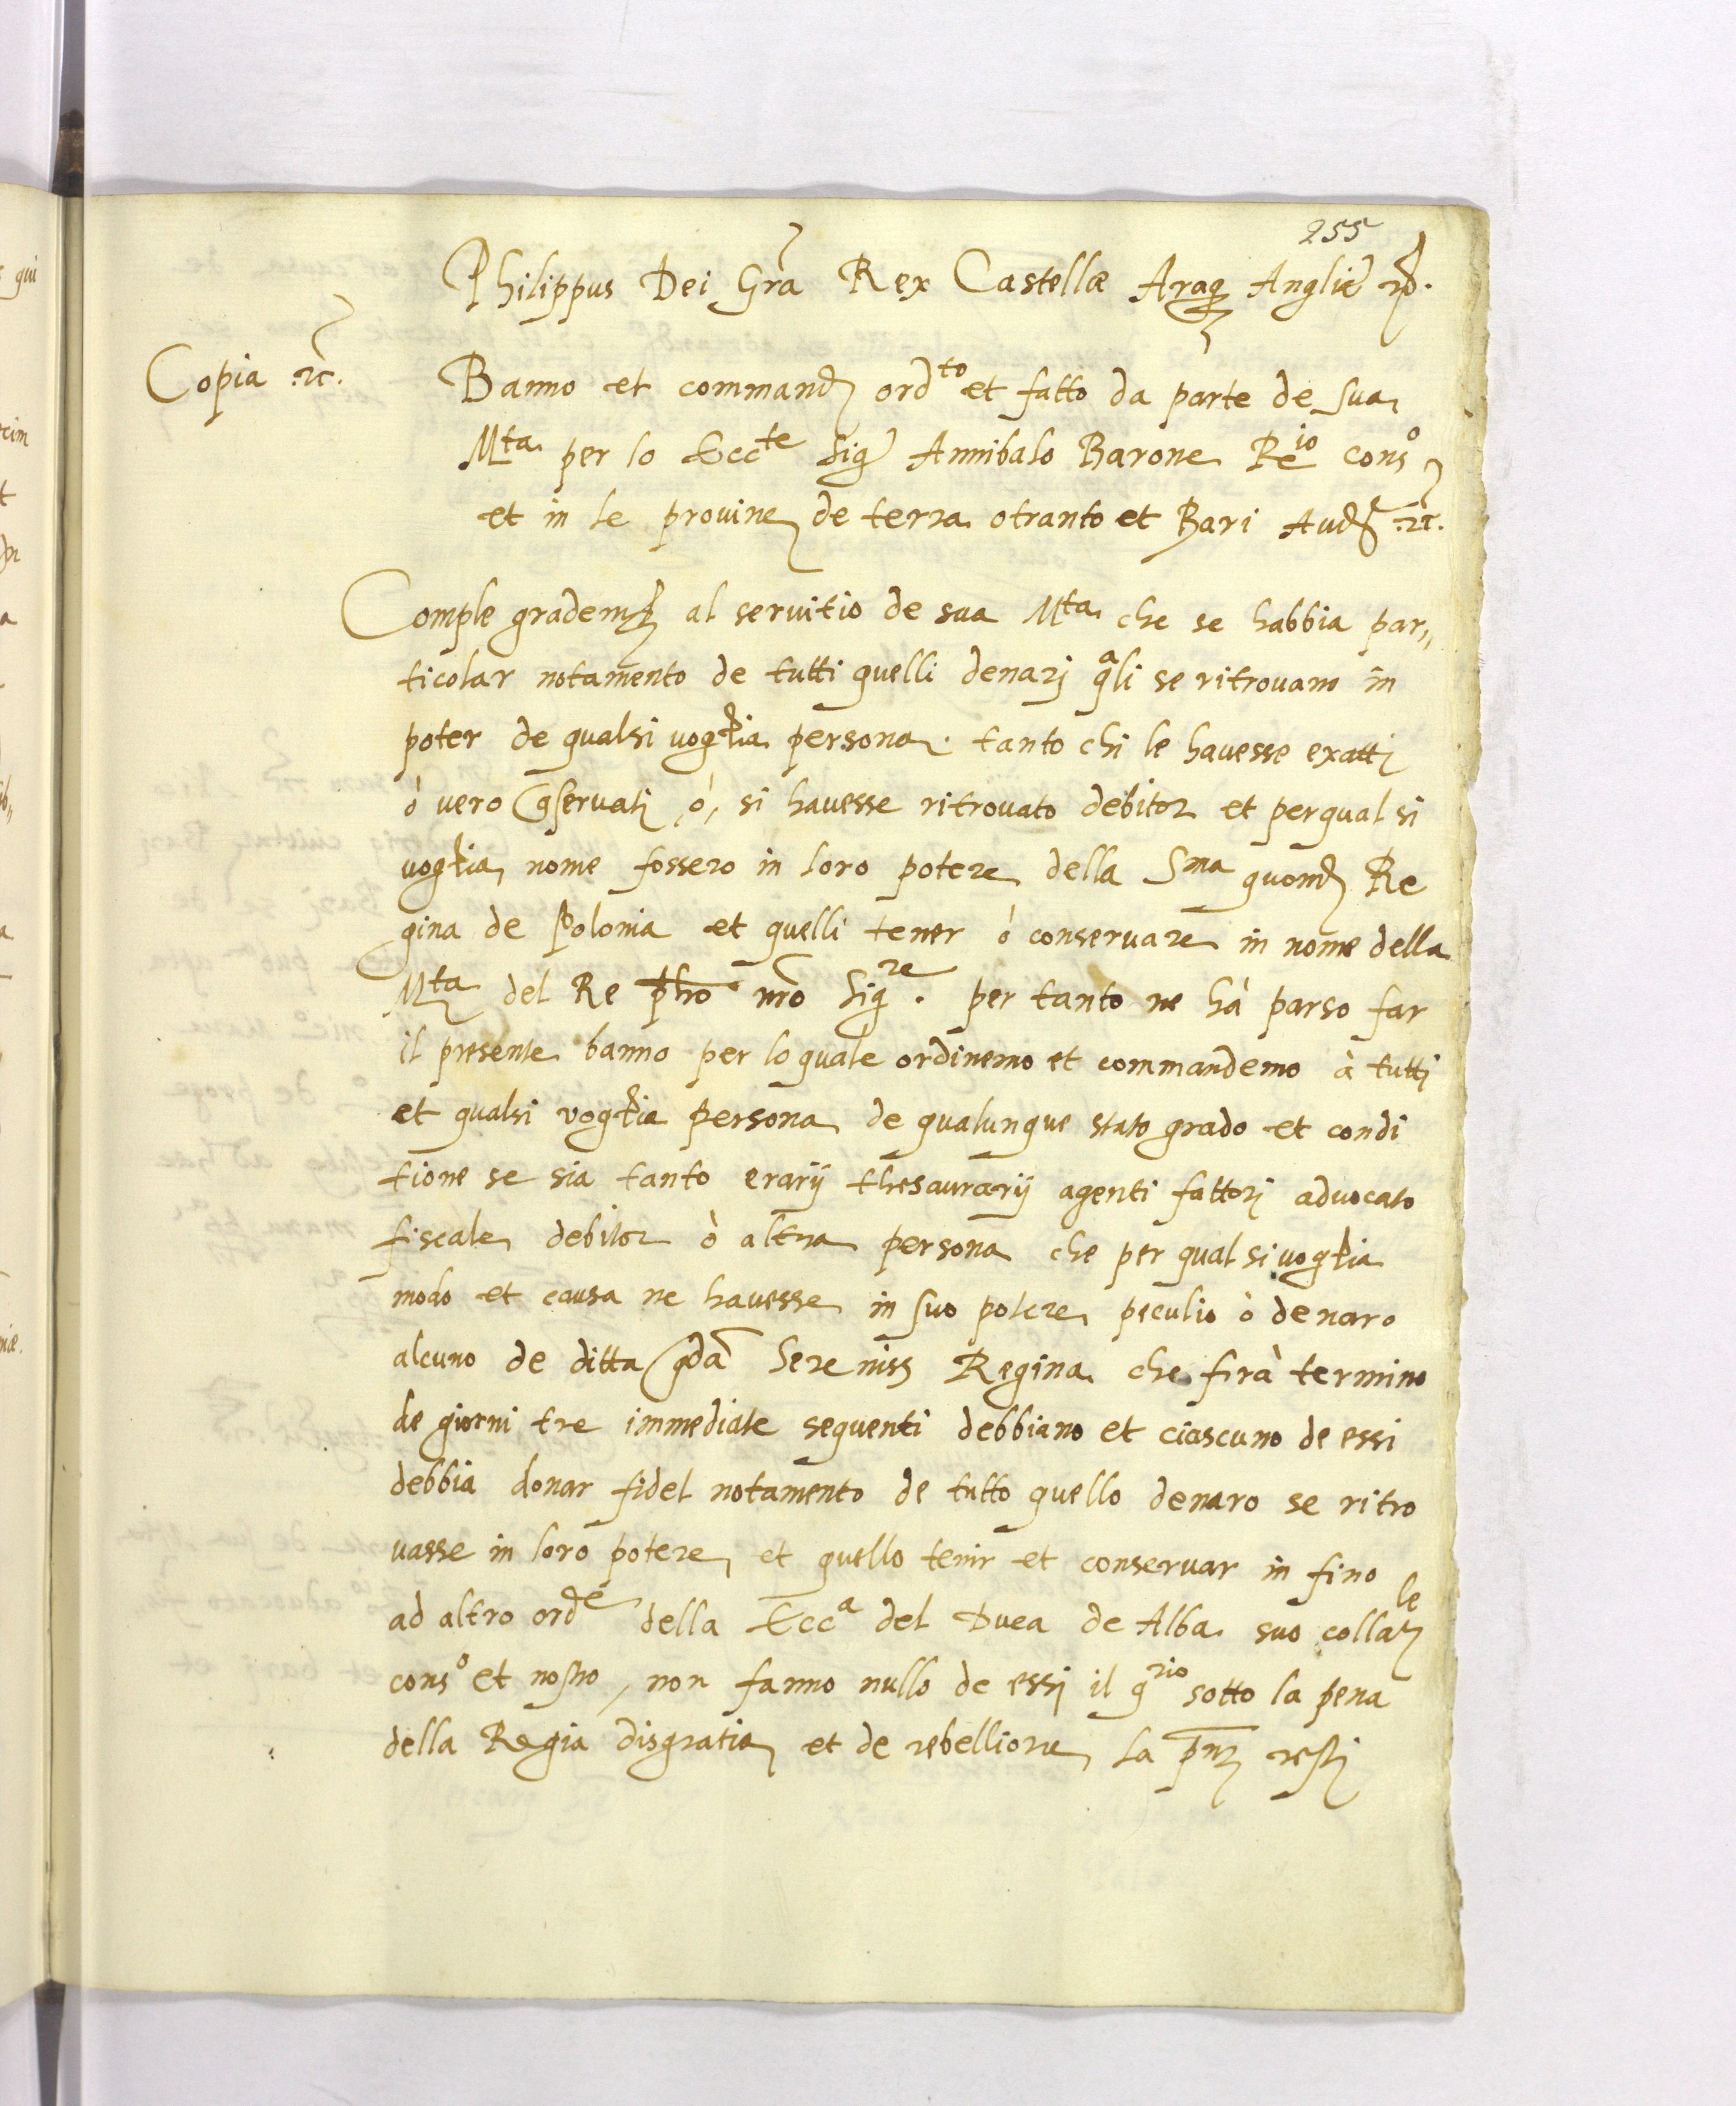 255
Philippus Dei Gra Rex Castellæ Arag Anglie etc.
Copia etc.
Banno et command ord.to et fatto da parte de sua
M.ta per lo Ecc.te Sig Annibalo Barone Re.io cons.o
et in le provinc de terra otranto et Bari Aud etc.
Comple grademt al servitio de sua M.ta che se habbia par,,
ticolar notamento de tutti quelli denarj q.ali se ritrovano in
poter de qualsi voglia persona. tanto chi le havesse exattj
ò vero cservatj, ò, si havesse ritrovato debitor et per qual si
voglia nome fossero in loro potere della S.ma quond Re
gina de Polonia et quelli tener ò conservare in nome della
M.ta del Re pho nro Sig.re. per tanto ne hà parso far
il presente banno per lo quale ordinemo et commandemo à tuttj
et qualsi voglia persona de qualunque stato grado et condi
tione se sia tanto erarij thesaurarij agenti fattorj advocato
fiscale debitor ò altra persona che per qual si voglia
modo et causa ne havesse in suo potere peculio ò denaro
alcuno de ditta qda Sereniss Regina che frà termino
de giorni tre immediate sequenti debbiano et ciascuno de essi
debbia donar fidel notamento de tutto quello denaro se ritro
vasse in loro potere, et quello tenir et conservar in fino
ad altro orde della Ecc.a del Duca de Alba suo collat.le
cons.o et nostro, non fanno nullo de essj il q.rio sotto la pena
della Regia disgratia et de rebellione la pnt restj